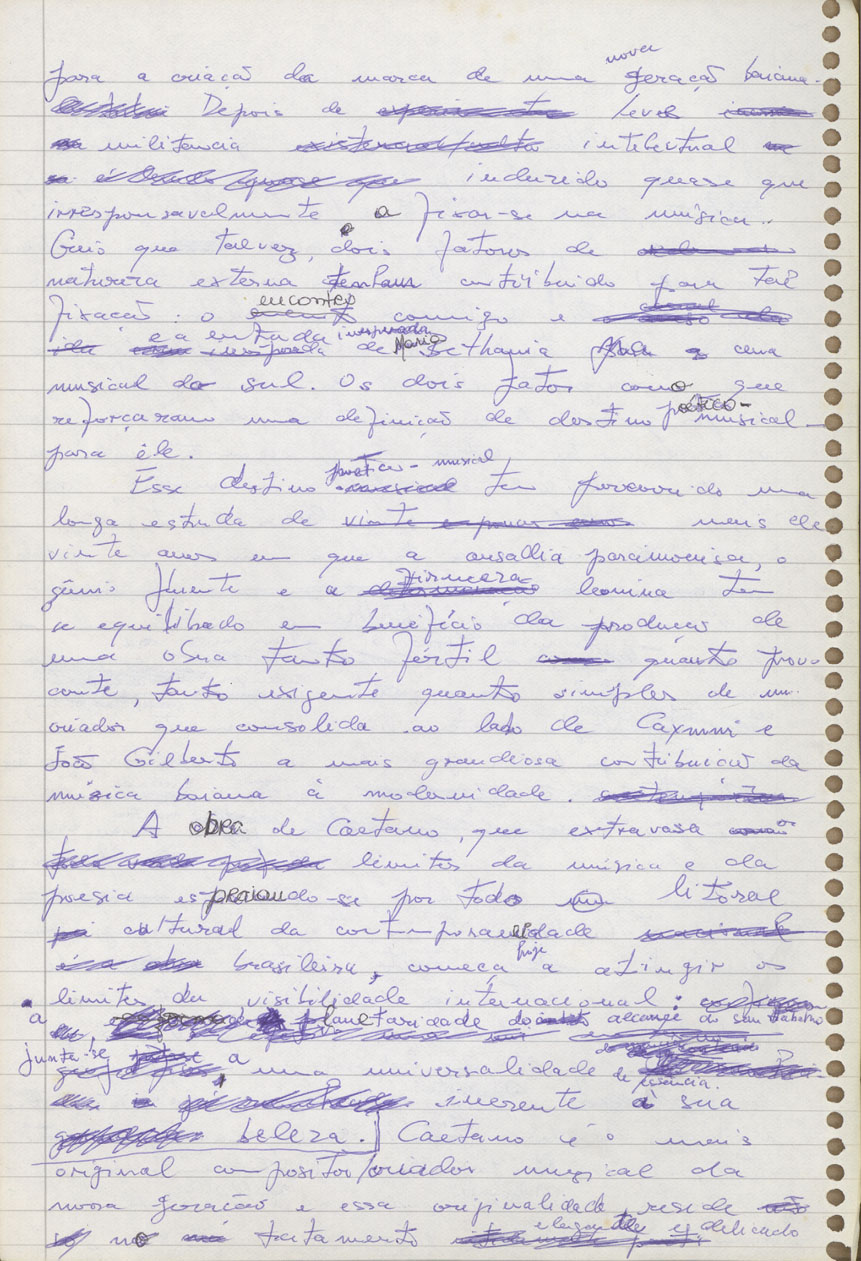 para a criação da marca de uma nova geração baiana.
Depois de leve
militancia intelectual
induzido quase que
irresponsavelmente a fixar-se na música.
Creio que talvez, dois fatores de
natureza externa tenham contribuido para tal
fixação: o encontro comigo e
e a entrada inesperada de Maria Bethania na cena
musical do sul. Os dois fatos como que
reforçaram uma definição de destino poético-musical
para êle.
Esse destino poetico-musical tem percorrido uma
longa estrada de mais de
vinte anos em que a ousadia parcimoniosa, o
gênio fluente e a firmeza leonina tem
se equilibrado em benefício da produção de
uma obra tanto fértil quanto provo-
cante, tanto exigente quanto simples de um
criador que consolida ao lado de Caymmi e
João Gilberto a mais grandiosa contribuição da
música baiana à modernidade.
A obra de Caetano, que extravasa os
limites da música e da
poesia espraiando-se por todo litoral
cultural da contemporaneidade
brasileira, começa hoje a atingir os
limites da visibilidade internacional.
a planetaridade do alcance do seu trabalho
junta-se a uma universalidade de essencia.
inerente à sua
beleza. Caetano é o mais
original compositor/criador musical da
nossa geração e essa originalidade reside
no tratamento elegante e delicado